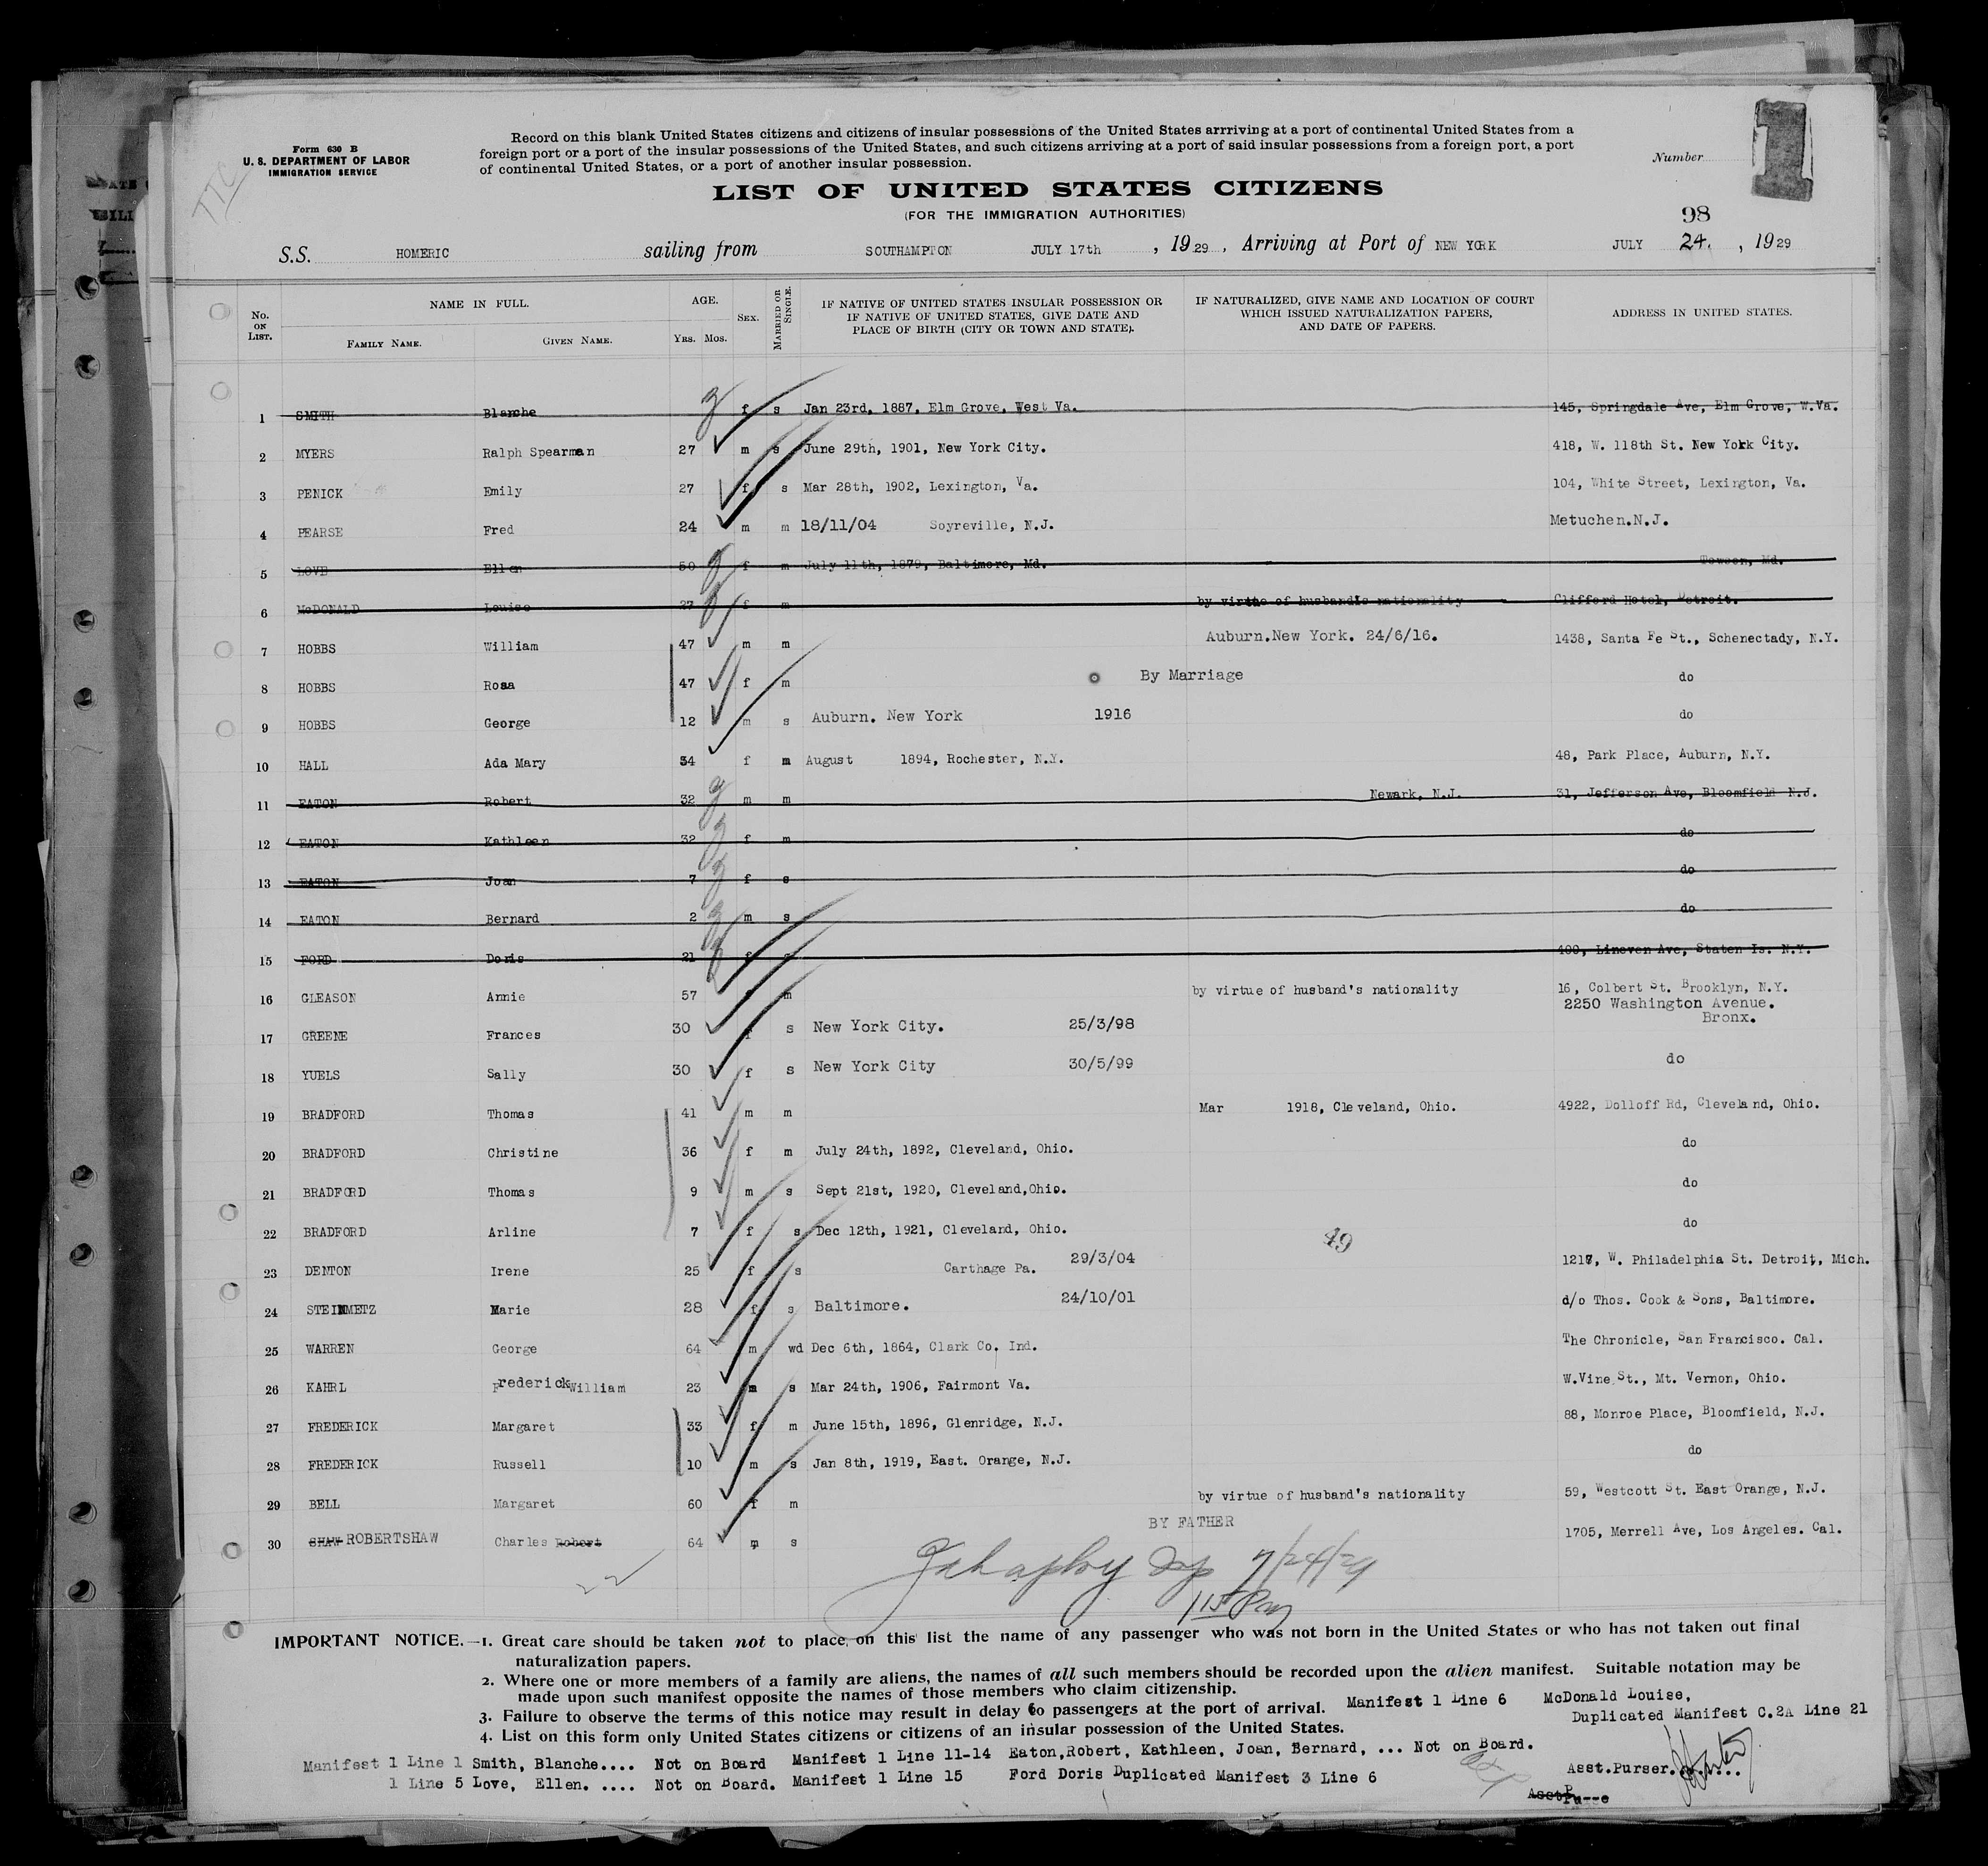 Form 630 B
U. S. DEPARTMENT OF LABOR
IMMIGRATION SERVICE
TTC
Record on this blank United States citizens and citizens of insular possessions of the United States arrriving at a port of continental United States from a
foreign port or a port of the insular possessions of the United States, and such citizens arriving at a port of said insular possessions from a foreign port, a port
of continental United States, or a port of another insular possession.
Number
1
LIST OF UNITED STATES CITIZENS
(FOR THE IMMIGRATION AUTHORITIES)
98
S.S. HOMERIC sailing from SOUTHAMPTON JULY 17th , 1929 , Arriving at Port of NEW YORK JULY 24. , 1929
No. ON LIST. NAME IN FULL. FAMILY NAME. GIVEN NAME. AGE. YRS. MOS. SEX. MARRIED OR SINGLE. IF NATIVE OF UNITED STATES INSULAR POSSESSION OR IF NATIVE OF UNITED STATES, GIVE DATE AND PLACE OF BIRTH (CITY OR TOWN AND STATE). IF NATURALIZED, GIVE NAME AND LOCATION OF COURT WHICH ISSUED NATURALIZATION PAPERS, AND DATE OF PAPERS. ADDRESS IN UNITED STATES.
1 SMITH Blanche f s Jan 23rd, 1887, Elm Grove, West Va. 145, Springdale Ave, Elm Grove, W.Va.
2 MYERS Ralph Spearman 27 m s June 29th, 1901, New York City. 418, W. 118th St. New York City.
3 PENICK Emily 27 f s Mar 28th, 1902, Lexington, Va. 104, White Street, Lexington, Va.
4 PEARSE Fred 24 m m 18/11/04 Soyreville, N.J. Metuchen.N.J.
5 LOVE Ellen 50 f m July 11th, 1879, Baltimore, Md. Towson, Md.
6 McDONALD Louise 27 f m by virtue of husband's nationality Clifford Hotel, Detroit.
7 HOBBS William 47 m m Auburn.New York. 24/6/16. 1438, Santa Fe St., Schenectady, N.Y.
8 HOBBS Rosa 47 f m By Marriage do
9 HOBBS George 12 m s Auburn. New York 1916 do
10 HALL Ada Mary 34 f m August 1894, Rochester, N.Y. 48, Park Place, Auburn, N.Y.
11 EATON Robert 32 m m Newark, N.J. 31, Jefferson Ave, Bloomfield N.J.
12 EATON Kathleen 32 f m do
13 EATON Joan 7 f s do
14 EATON Bernard 2 m s do
15 FORD Doris 21 f s 400, Lineven Ave, Staten Is. N.Y.
16 GLEASON Annie 57 f m by virtue of husband's nationality 16, Colbert St. Brooklyn, N.Y.
2250 Washington Avenue.
Bronx.
17 GREENE Frances 30 f s New York City. 25/3/98
18 YUELS Sally 30 f s New York City 30/5/99 do
19 BRADFORD Thomas 41 m m Mar 1918, Cleveland, Ohio. 4922, Dolloff Rd, Cleveland, Ohio.
20 BRADFORD Christine 36 f m July 24th, 1892, Cleveland, Ohio. do
21 BRADFORD Thomas 9 m s Sept 21st, 1920, Cleveland,Ohio. do
22 BRADFORD Arline 7 f s Dec 12th, 1921, Cleveland, Ohio. do
49
23 DENTON Irene 25 f s Carthage Pa. 29/3/04 1217, W. Philadelphia St. Detroit, Mich.
24 STEINMETZ Marie 28 f s Baltimore. 24/10/01 d/o Thos. Cook & Sons, Baltimore.
25 WARREN George 64 m wd Dec 6th, 1864, Clark Co. Ind. The Chronicle, San Francisco. Cal.
26 KAHRL Frederick William 23 m s Mar 24th, 1906, Fairmont Va. W.Vine St., Mt. Vernon, Ohio.
27 FREDERICK Margaret 33 f m June 15th, 1896, Glenridge, N.J. 88, Monroe Place, Bloomfield, N.J.
28 FREDERICK Russell 10 m s Jan 8th, 1919, East. Orange, N.J. do
29 BELL Margaret 60 f m by virtue of husband's nationality 59, Westcott St. East Orange, N.J.
30 SHAW ROBERTSHAW Charles Robert 64 m s BY FATHER 1705, Merrell Ave, Los Angeles. Cal.
22
7/24/29
IMPORTANT NOTICE.—1. Great care should be taken not to place on this list the name of any passenger who was not born in the United States or who has not taken out final
naturalization papers.
2. Where one or more members of a family are aliens, the names of all such members should be recorded upon the alien manifest. Suitable notation may be
made upon such manifest opposite the names of those members who claim citizenship.
3. Failure to observe the terms of this notice may result in delay to passengers at the port of arrival. Manifest 1 Line 6 McDonald Louise,
Duplicated Manifest C.2A Line 21
4. List on this form only United States citizens or citizens of an insular possession of the United States.
Manifest 1 Line 1 Smith, Blanche.... Not on Board Manifest 1 Line 11-14 Eaton,Robert, Kathleen, Joan, Bernard, ... Not on Board.
1 Line 5 Love, Ellen. .... Not on Board. Manifest 1 Line 15 Ford Doris Duplicated Manifest 3 Line 6
Asst.Purser.